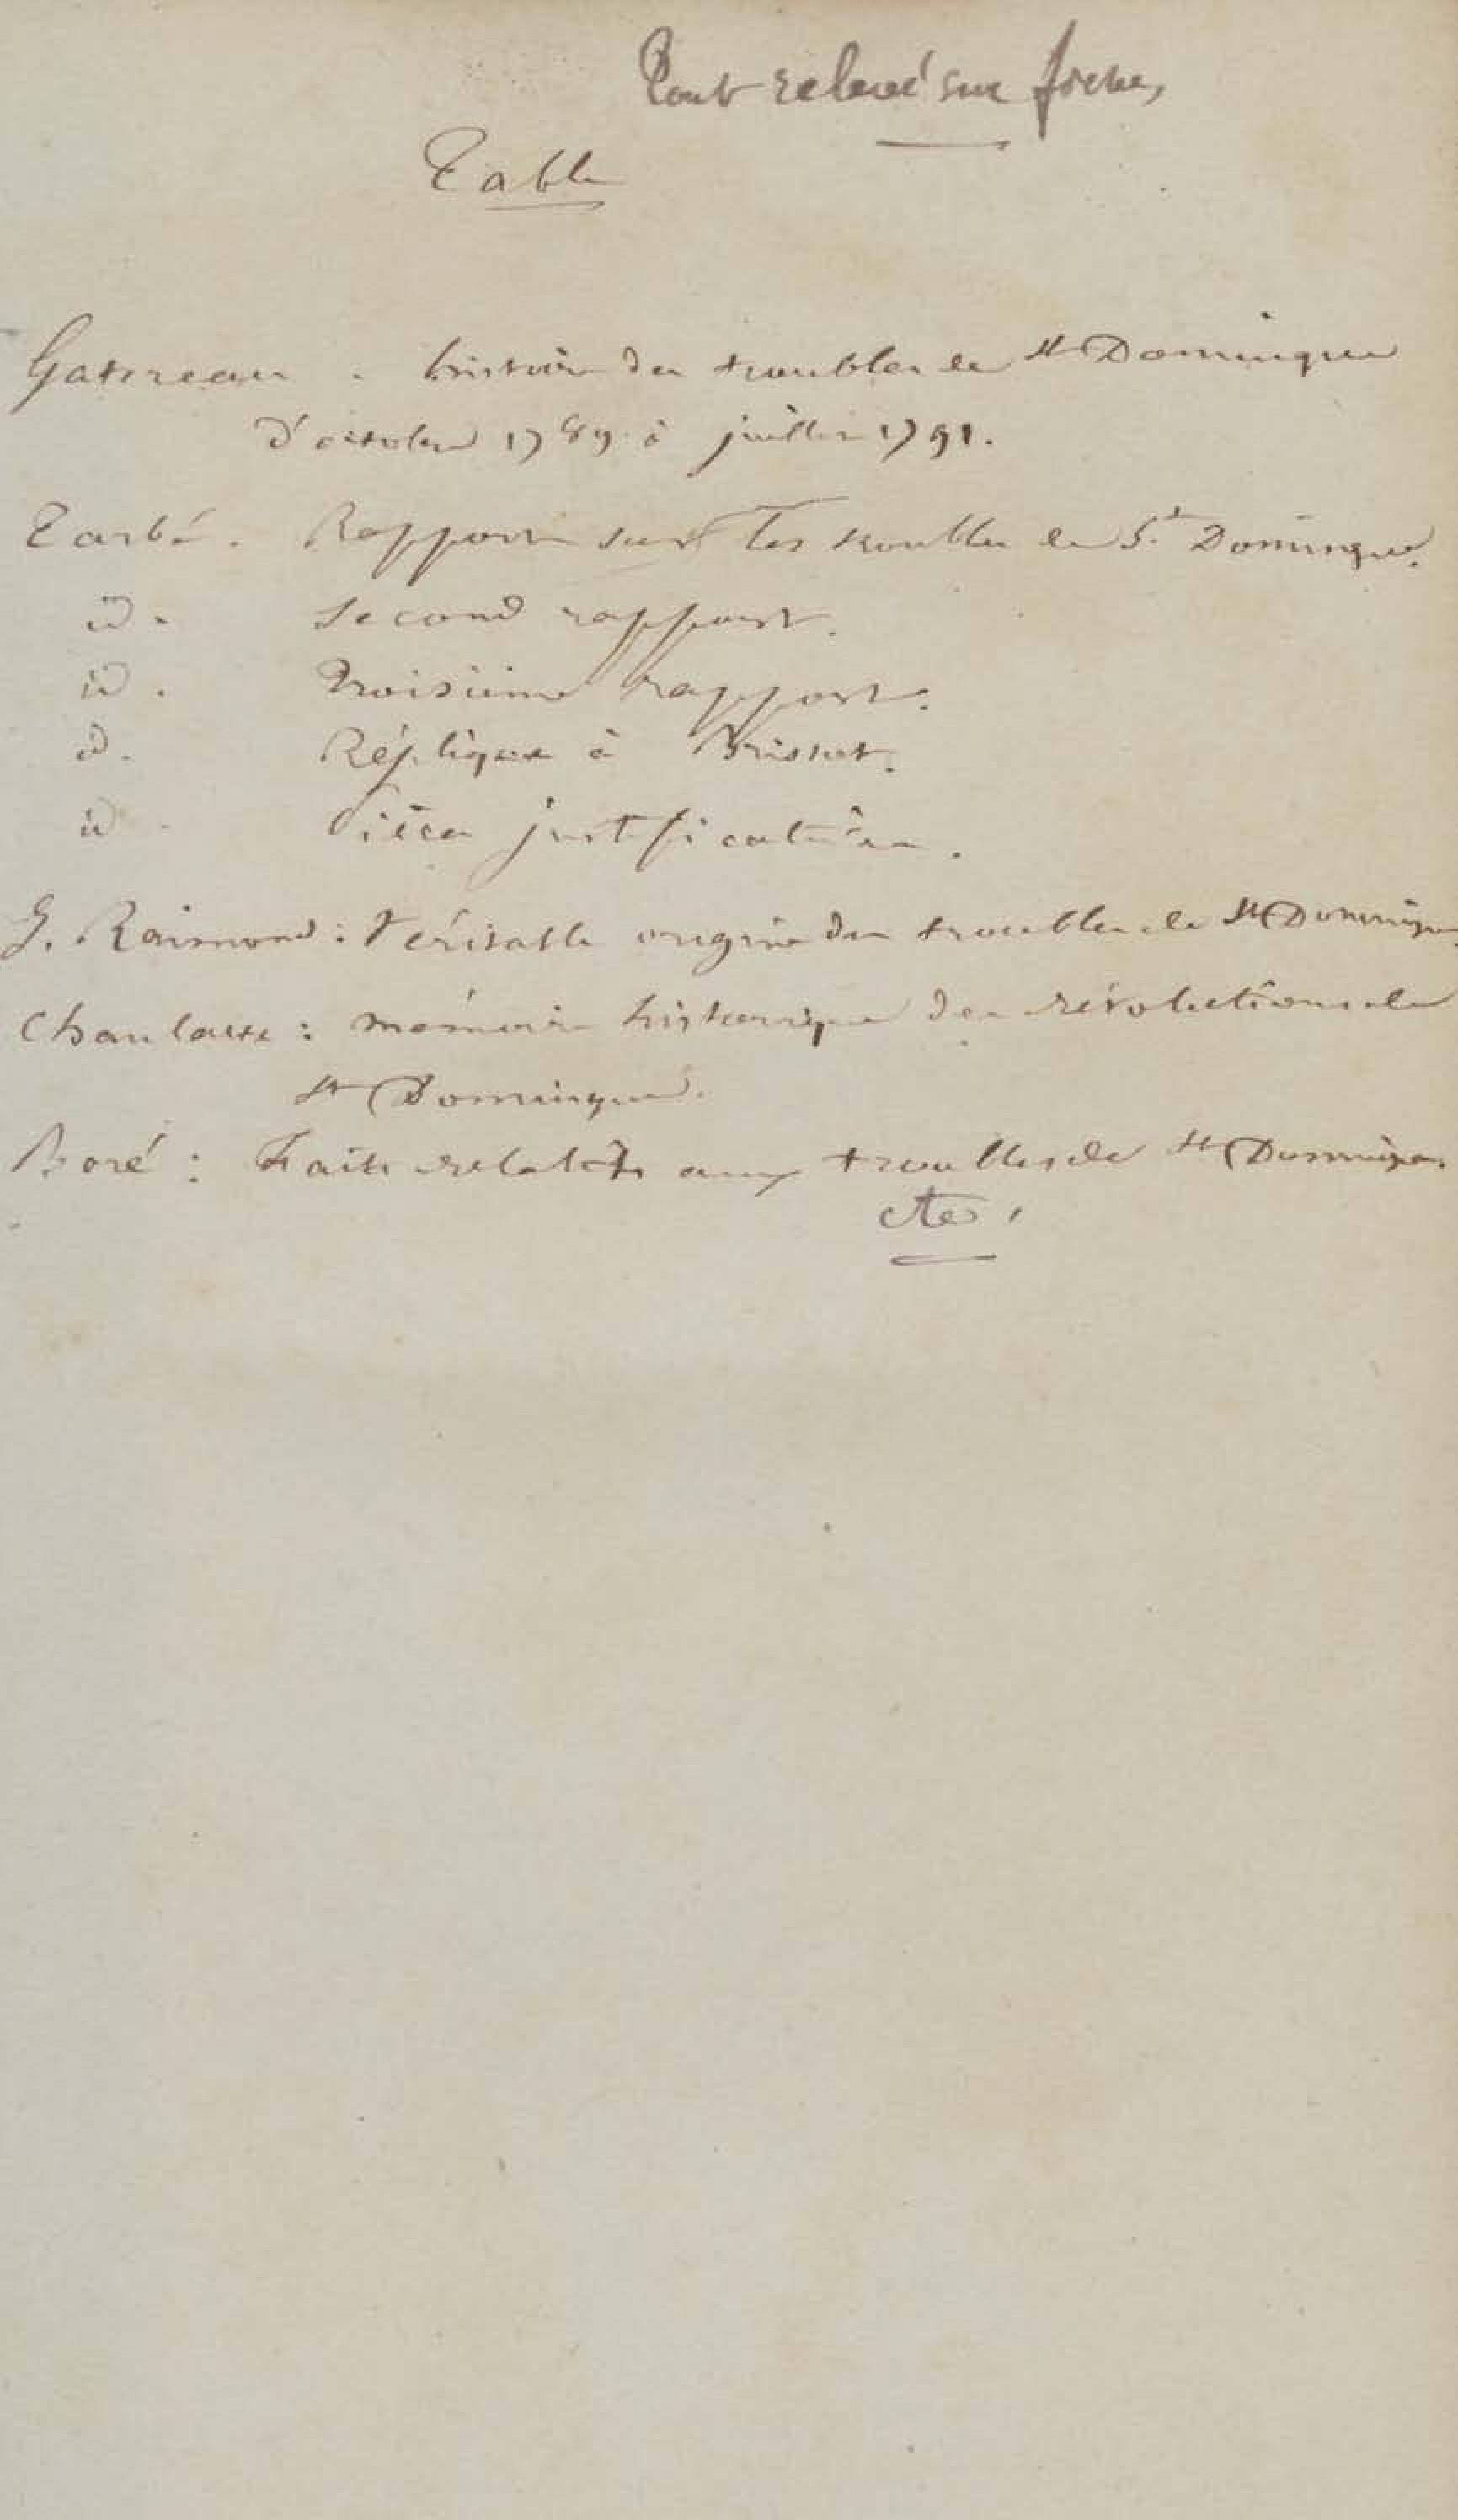 Tout relevé sur fiches
Table
Gatereau . histoire des troubles de St Domingue
d'octobre 1789 à juillet 1791.
Tarbé . Rapport sur les troubles de St Domingue.
id . Second rapport.
id . Troisième rapport.
id . Réplique à Brissot.
id . Pièces justificatives .
J. Raimond : Véritable origine des troubles de St Domingue.
Chanlatte : mémoire historique des révolutions de
St Domingue.
Boré : Faits relatifs aux troubles de St Domingue.
etc.